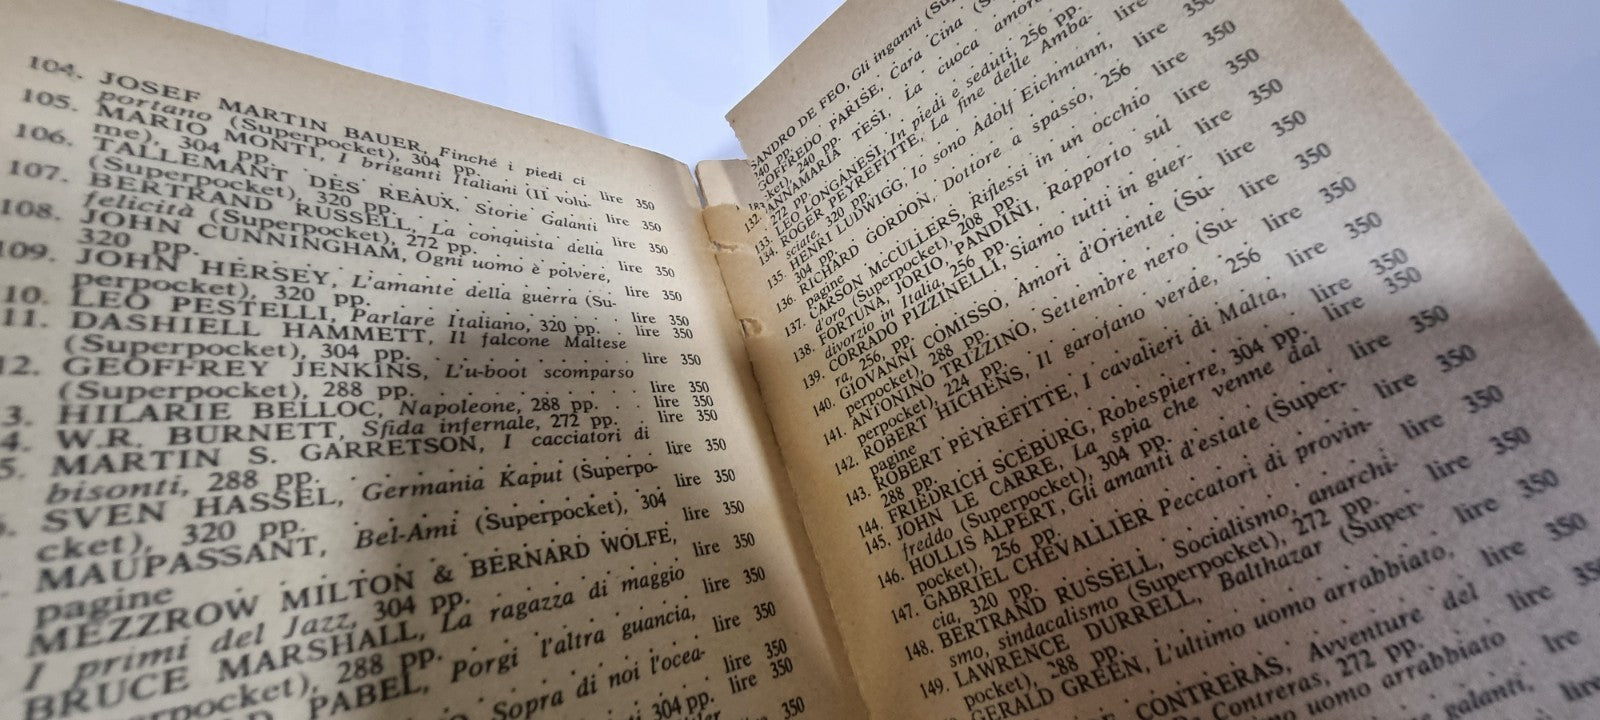 104. JOSEF MARTIN BAUER, Finché i piedi ci
portano (Superpocket), 304 pp. lire 350
105. MARIO MONTI, I briganti Italiani (II volu-
me), 304 pp. lire 350
106. TALLEMANT DES REAUX, Storie Galanti
(Superpocket), 320 pp. lire 350
107. BERTRAND RUSSELL, La conquista della
felicità (Superpocket), 272 pp. lire 350
108. JOHN CUNNINGHAM, Ogni uomo è polvere,
320 pp. lire 350
109. JOHN HERSEY, L'amante della guerra (Su-
perpocket), 320 pp. lire 350
10. LEO PESTELLI, Parlare Italiano, 320 pp. lire 350
11. DASHIELL HAMMETT, Il falcone Maltese
(Superpocket), 304 pp. lire 350
12. GEOFFREY JENKINS, L'u-boot scomparso
(Superpocket), 288 pp. lire 350
3. HILARIE BELLOC, Napoleone, 288 pp. lire 350
4. W.R. BURNETT, Sfida infernale, 272 pp. lire 350
5. MARTIN S. GARRETSON, I cacciatori di
bisonti, 288 pp. lire 350
SVEN HASSEL, Germania Kaput (Superpo-
cket), 320 pp. lire 350
MAUPASSANT, Bel-Ami (Superpocket), 304
pagine lire 350
MEZZROW MILTON & BERNARD WOLFE,
I primi del Jazz, 304 pp. lire 350
BRUCE MARSHALL, La ragazza di maggio
perpocket), 288 pp. lire 350
PABEL, Porgi l'altra guancia,
lire 350
Sopra di noi l'ocea-
304 pp. lire 350
lire 350
SANDRO DE FEO, Gli inganni
240 pp.
GOFFREDO PARISE, Cara Cina
240 pp.
132. ANNAMARIA TESI, La cuoca
272 pp.
133. LEO LONGANESI, In piedi e seduti, 256 pp. lire
134. ROGER PEYREFITTE, La fine delle Amba-
sciate, 320 pp. lire 350
135. HENRI LUDWIGG, Io sono Adolf Eichmann,
304 pp. lire 350
136. RICHARD GORDON, Dottore a spasso, 256
pagine lire 350
137. CARSON McCULLERS, Riflessi in un occhio
d'oro (Superpocket), 208 pp. lire 350
138. FORTUNA, JORIO, PANDINI, Rapporto sul
divorzio in Italia, 256 pp. lire 350
139. CORRADO PIZZINELLI, Siamo tutti in guer-
ra, 256 pp. lire 350
140. GIOVANNI COMISSO, Amori d'Oriente (Su-
perpocket), 288 pp. lire 350
141. ANTONINO TRIZZINO, Settembre nero (Su-
perpocket), 224 pp. lire 350
142. ROBERT HICHENS, Il garofano verde, 256
pagine lire 350
143. ROBERT PEYREFITTE, I cavalieri di Malta,
288 pp. lire 350
144. FRIEDRICH SCEBURG, Robespierre, 304 pp. lire 350
145. JOHN LE CARRE, La spia che venne dal
freddo (Superpocket), 304 pp. lire 350
146. HOLLIS ALPERT, Gli amanti d'estate (Super-
pocket), 256 pp. lire 350
147. GABRIEL CHEVALLIER Peccatori di provin-
cia, 320 pp. lire 350
148. BERTRAND RUSSELL, Socialismo, anarchi-
smo, sindacalismo (Superpocket), 272 pp. lire 350
149. LAWRENCE DURRELL, Balthazar (Super-
pocket), 288 pp. lire 350
GERALD GREEN, L'ultimo uomo arrabbiato,
lire 350
CONTRERAS, Avventure del
Contreras, 272 pp. lire
uomo arrabbiato
galanti, lire